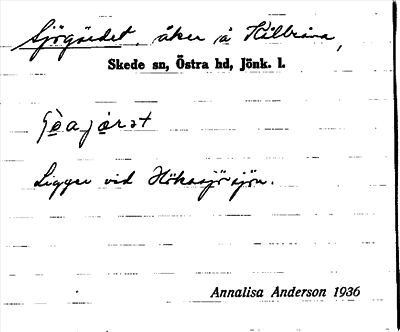 Sjögärdet, åker å Källeråra,
Skede sn, Östra hd, Jönk. l.
Ligger vid Hökasjösjön.
Annalisa Anderson 1936